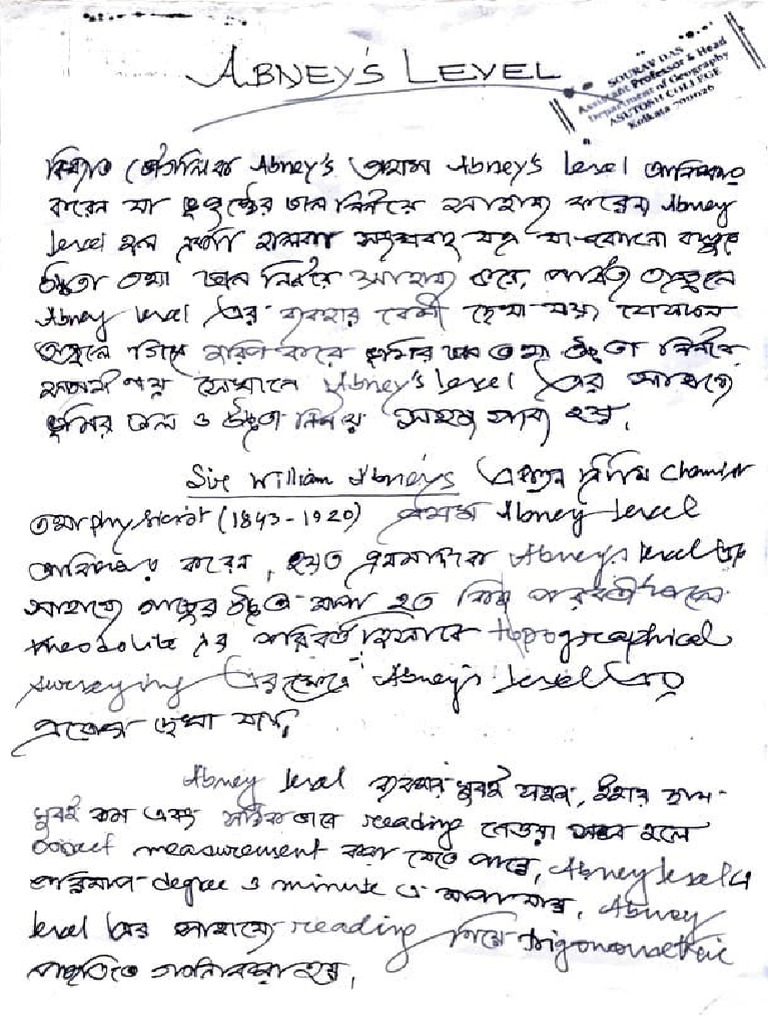 ABNEY'S LEVEL
SOURAV DAS
Assistant Professor & Head
Department of Geography
ASUTOSH COLLEGE
Kolkata 700026
বিখ্যাত ভৌগলিক Abney's প্রথম Abney's level আবিষ্কার
করেন যা ভূপৃষ্ঠের ঢাল নির্নয়ে সাহায্য করেন। Abney
level হল একটা হালকা যন্ত্র যা কোনো বস্তুর
উচ্চতা তথা ঢাল নির্নয়ে সাহায্য করে, পার্বত্য অঞ্চলে
Abney level এর ব্যবহার বেশী দেখা যায়
অঞ্চলে গিয়ে জরিপ করে ভূমির ঢাল তথা উচ্চতা নির্নয়
সেখানে Abney's level এর সাহায্যে
ভূমির ঢাল ও উচ্চতা নির্নয় সহজ হয়,
Sir William Abney's একজন ব্রিটিশ Chemist
তথা physicist (1843-1920) প্রথম Abney level
আবিষ্কার করেন, Abney's level এর
সাহায্যে গাছের উচ্চতা মাপা হত কিন্তু পরবর্তীকালে
theodolite এর পরিবর্ত হিসাবে topographical
surveying এর ক্ষেত্রে Abney's level এর
প্রয়োগ দেখা যায়।
Abney level ব্যবহার খুবই সহজ, ইহার দাম
খুবই কম এবং সঠিক ভাবে reading নেওয়া সম্ভব হলে
correct measurement করা যেতে পারে, Abney level এ
পরিমাপ degree ও minute এ মাপা যায়, Abney
level এর সাহায্যে reading নিয়ে trigonometric
পদ্ধতিতে গননা করা হয়,